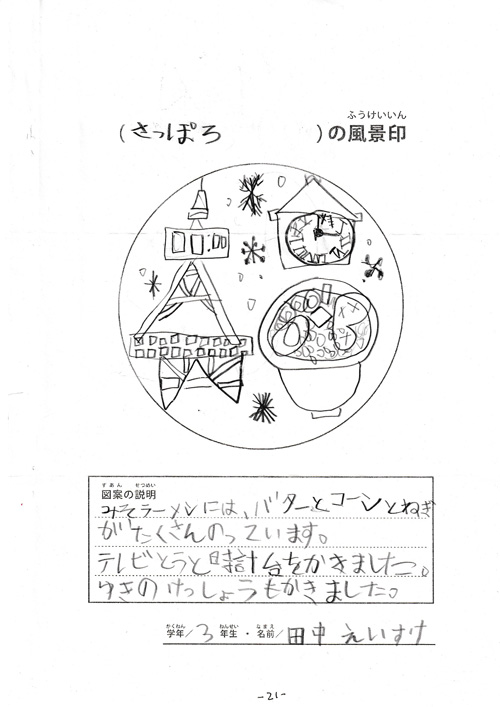 ふうけいいん
(さっぽろ)の風景印
00:00
ずあん せつめい
図案の説明
みそラーメンには、バターとコーンとねぎ
がたくさんのっています。
テレビとうと時計台をかきました。
ゆきのけっしょうもかきました。
がくねん ねんせい なまえ
学年/3年生・名前/田中えいすけ
-21-